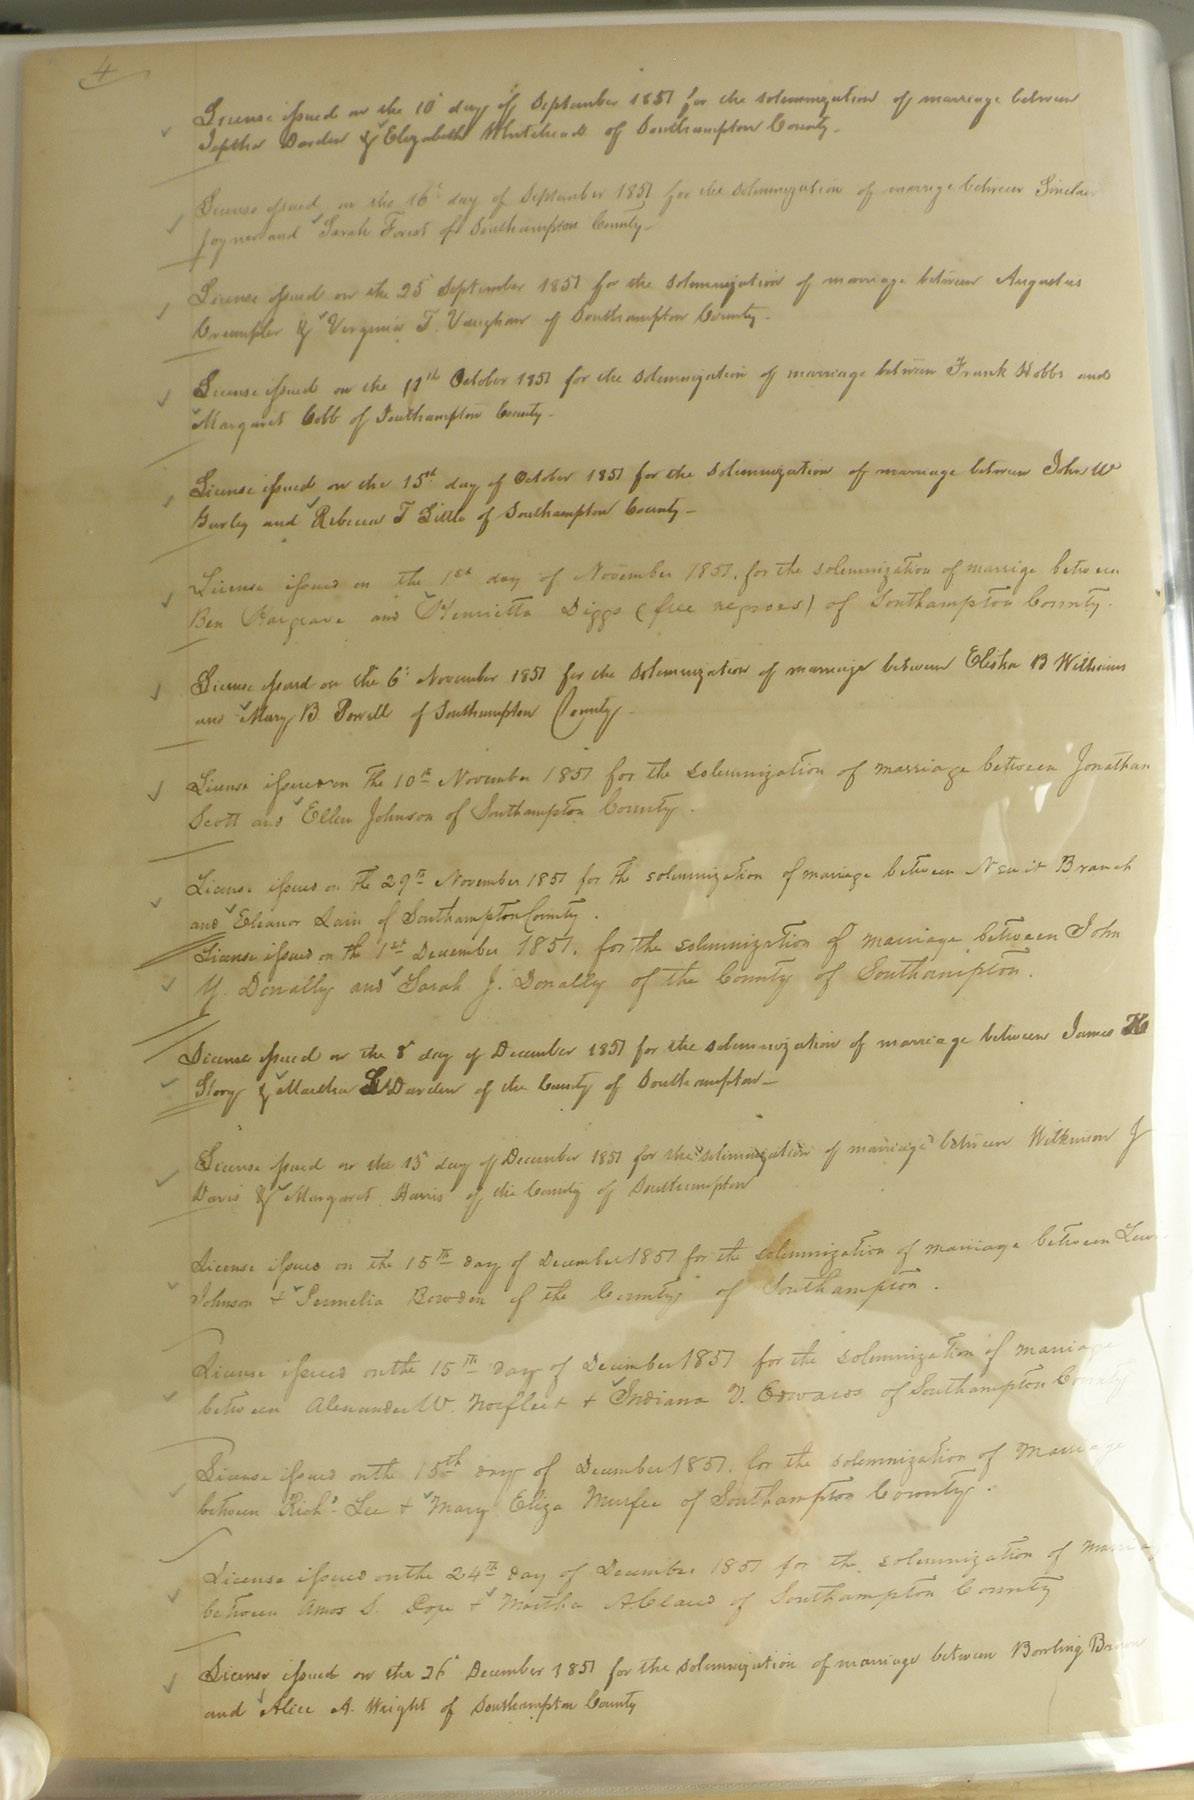 4
License issued on the 10 day of September 1851 for the solemnization of marriage between
Jeptha Darden & Elizabeth Whitehead of Southampton County.
License issued on the 16 day of September 1851 for the solemnization of marriage between Sinclair
Joyner and Sarah Forest of Southampton County
License issued on the 25 September 1851 for the solemnization of marriage between Augustus
Crumpler & Virginia T. Vaughan of Southampton County.
License issued on the 11th October 1851 for the solemnization of marriage between Frank Hobbs and
Margaret Cobb of Southampton County
License issued on the 15th day of October 1851 for the solemnization of marriage between John W
Gurley and Rebecca T Little of Southampton County
License issued on the 1st day of November 1851. for the solemnization of marriage between
Ben Hargrave and Henrietta Diggs (free negroes) of Southampton County.
License issued on the 6 November 1851 for the solemnization of marriage between Elisha B Williams
and Mary B Powell of Southampton County
License issued on the 10th November 1851 for the solemnization of marriage between Jonathan
Scott and Ellen Johnson of Southampton County.
License issued on the 29th November 1851 for the solemnization of marriage between Newit Branch
and Eleanor Lain of Southampton County.
License issued on the 1st December 1851. for the solemnization of marriage between John
Y. Donally and Sarah J. Donally of the County of Southampton.
License issued on the 8 day of December 1851 for the solemnization of marriage between James H
Story & Martha Darden of the County of Southampton
License issued on the 15 day of December 1851 for the solemnization of marriage between Wilkinson J
Davis & Margaret Harris of the County of Southampton
License issued on the 15th day of December 1851 for the solemnization of marriage between
Johnson + Permelia Bowden of the County of Southampton.
License issued on the 15th day of December 1851 for the solemnization of marriage
between Alexander W. Norfleet + Indiana V. Edwards of Southampton County
License issued on the 15th day of December 1851. for the solemnization of Marriage
between Richd. Lee + Mary Eliza Murfee of Southampton County.
License issued on the 24th day of December 1851 for the solemnization of Marriage
between Amos S. Pope + Martha of Southampton County
License issued on the 26 December 1851 for the solemnization of marriage between Bowling Brown
and Alice A. Wright of Southampton County